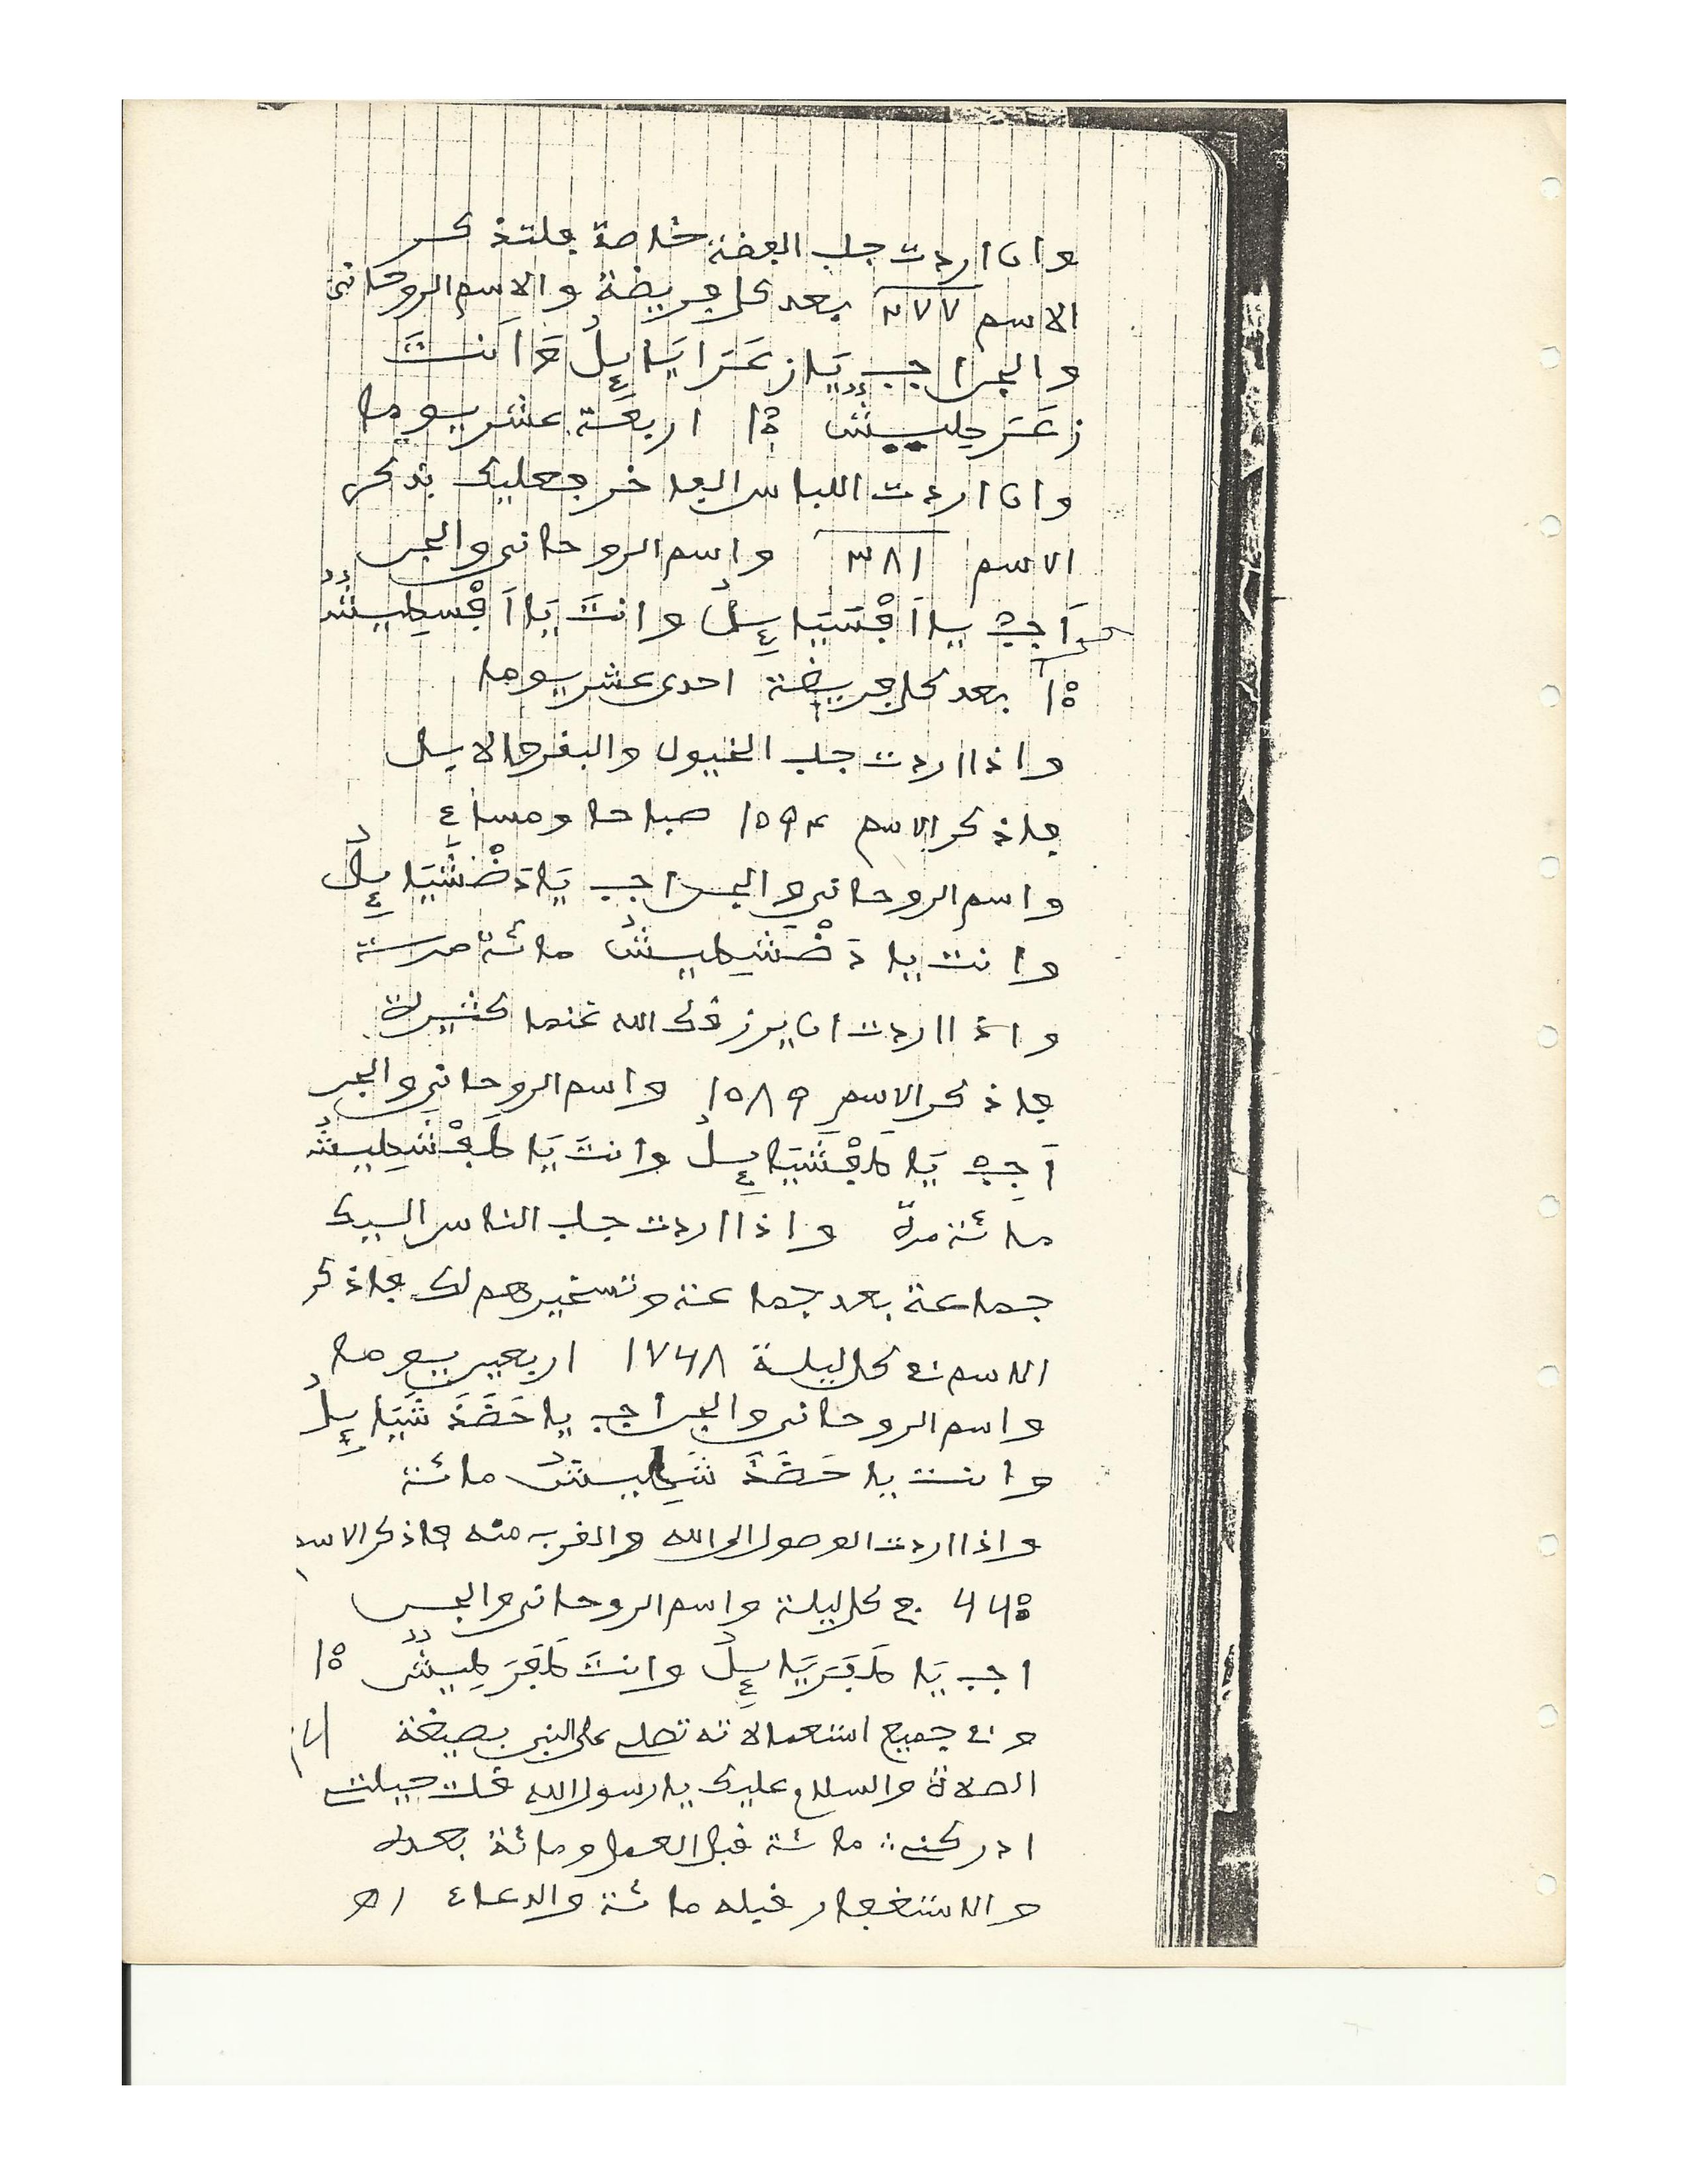 وان اردت جلب الفضة خاصة فلتذكر
الاسم ٣٧٧ بعد كل فريضة والاسم الروحاني
والجن اجب يَا زعَرَايَايِٕيلُ وَاَنتَ
زعَرطيشٌ ١٠٠ اربعة عشر يوما
وان اردت اللباس الفاخر فعليك بذكر
الاسم ٣٨١ واسم الروحاني والجن
اَجِبْ يا اَفْسَيَايِٕيلُ وانتَ يَا اَفْسَطِيشٌ
١٠٠ بعد كل فريضة احدى عشر يوما
واذا اردت جلب الخيول والبقر والابل
فاذكر الاسم ١٥٩٤ صباحا ومساء
واسم الروحاني والجن اجب يَا دَضْشَيَايِٕيلُ
وانت يا دَضْشَطِيشُ مائة مرة
واذا اردت ان يرزقك الله غنما كثيرة
فاذكر الاسم ١٥٨٩ واسم الروحاني والجن
اَجِبْ يَا طَفْشَيَايِٕيلُ وانتَ يَا طَفْشَطِيشُ
مائة مرة واذا اردت جلب الناس اليك
جماعة بعد جماعة وتسخيرهم لك فاذكر
الاسم في كل ليلة ١٧٤٨ اربعين يوما
واسم الروحاني والجن اجب يا حَضَذَشَيَايِٕيلُ
وانت يا حَضَذَشَطِيشُ مائة
واذا اردت الوصول الى الله والقرب منه فاذكر الاسم
٦٦٠ في كل ليلة واسم الروحاني والجن
اجب يَا طَفَرَيَايِٕيلُ وانتَ طَفَرَطِيشٌ ١٠٠
وفي جميع استعمالاته تصلي على النبي بصيغة
الصلاة والسلام عليك يا رسول الله قلت حيلتي
ادركني مائة قبل العمل ومائة بعده
والاستغفار قبله مائة والدعاء اه